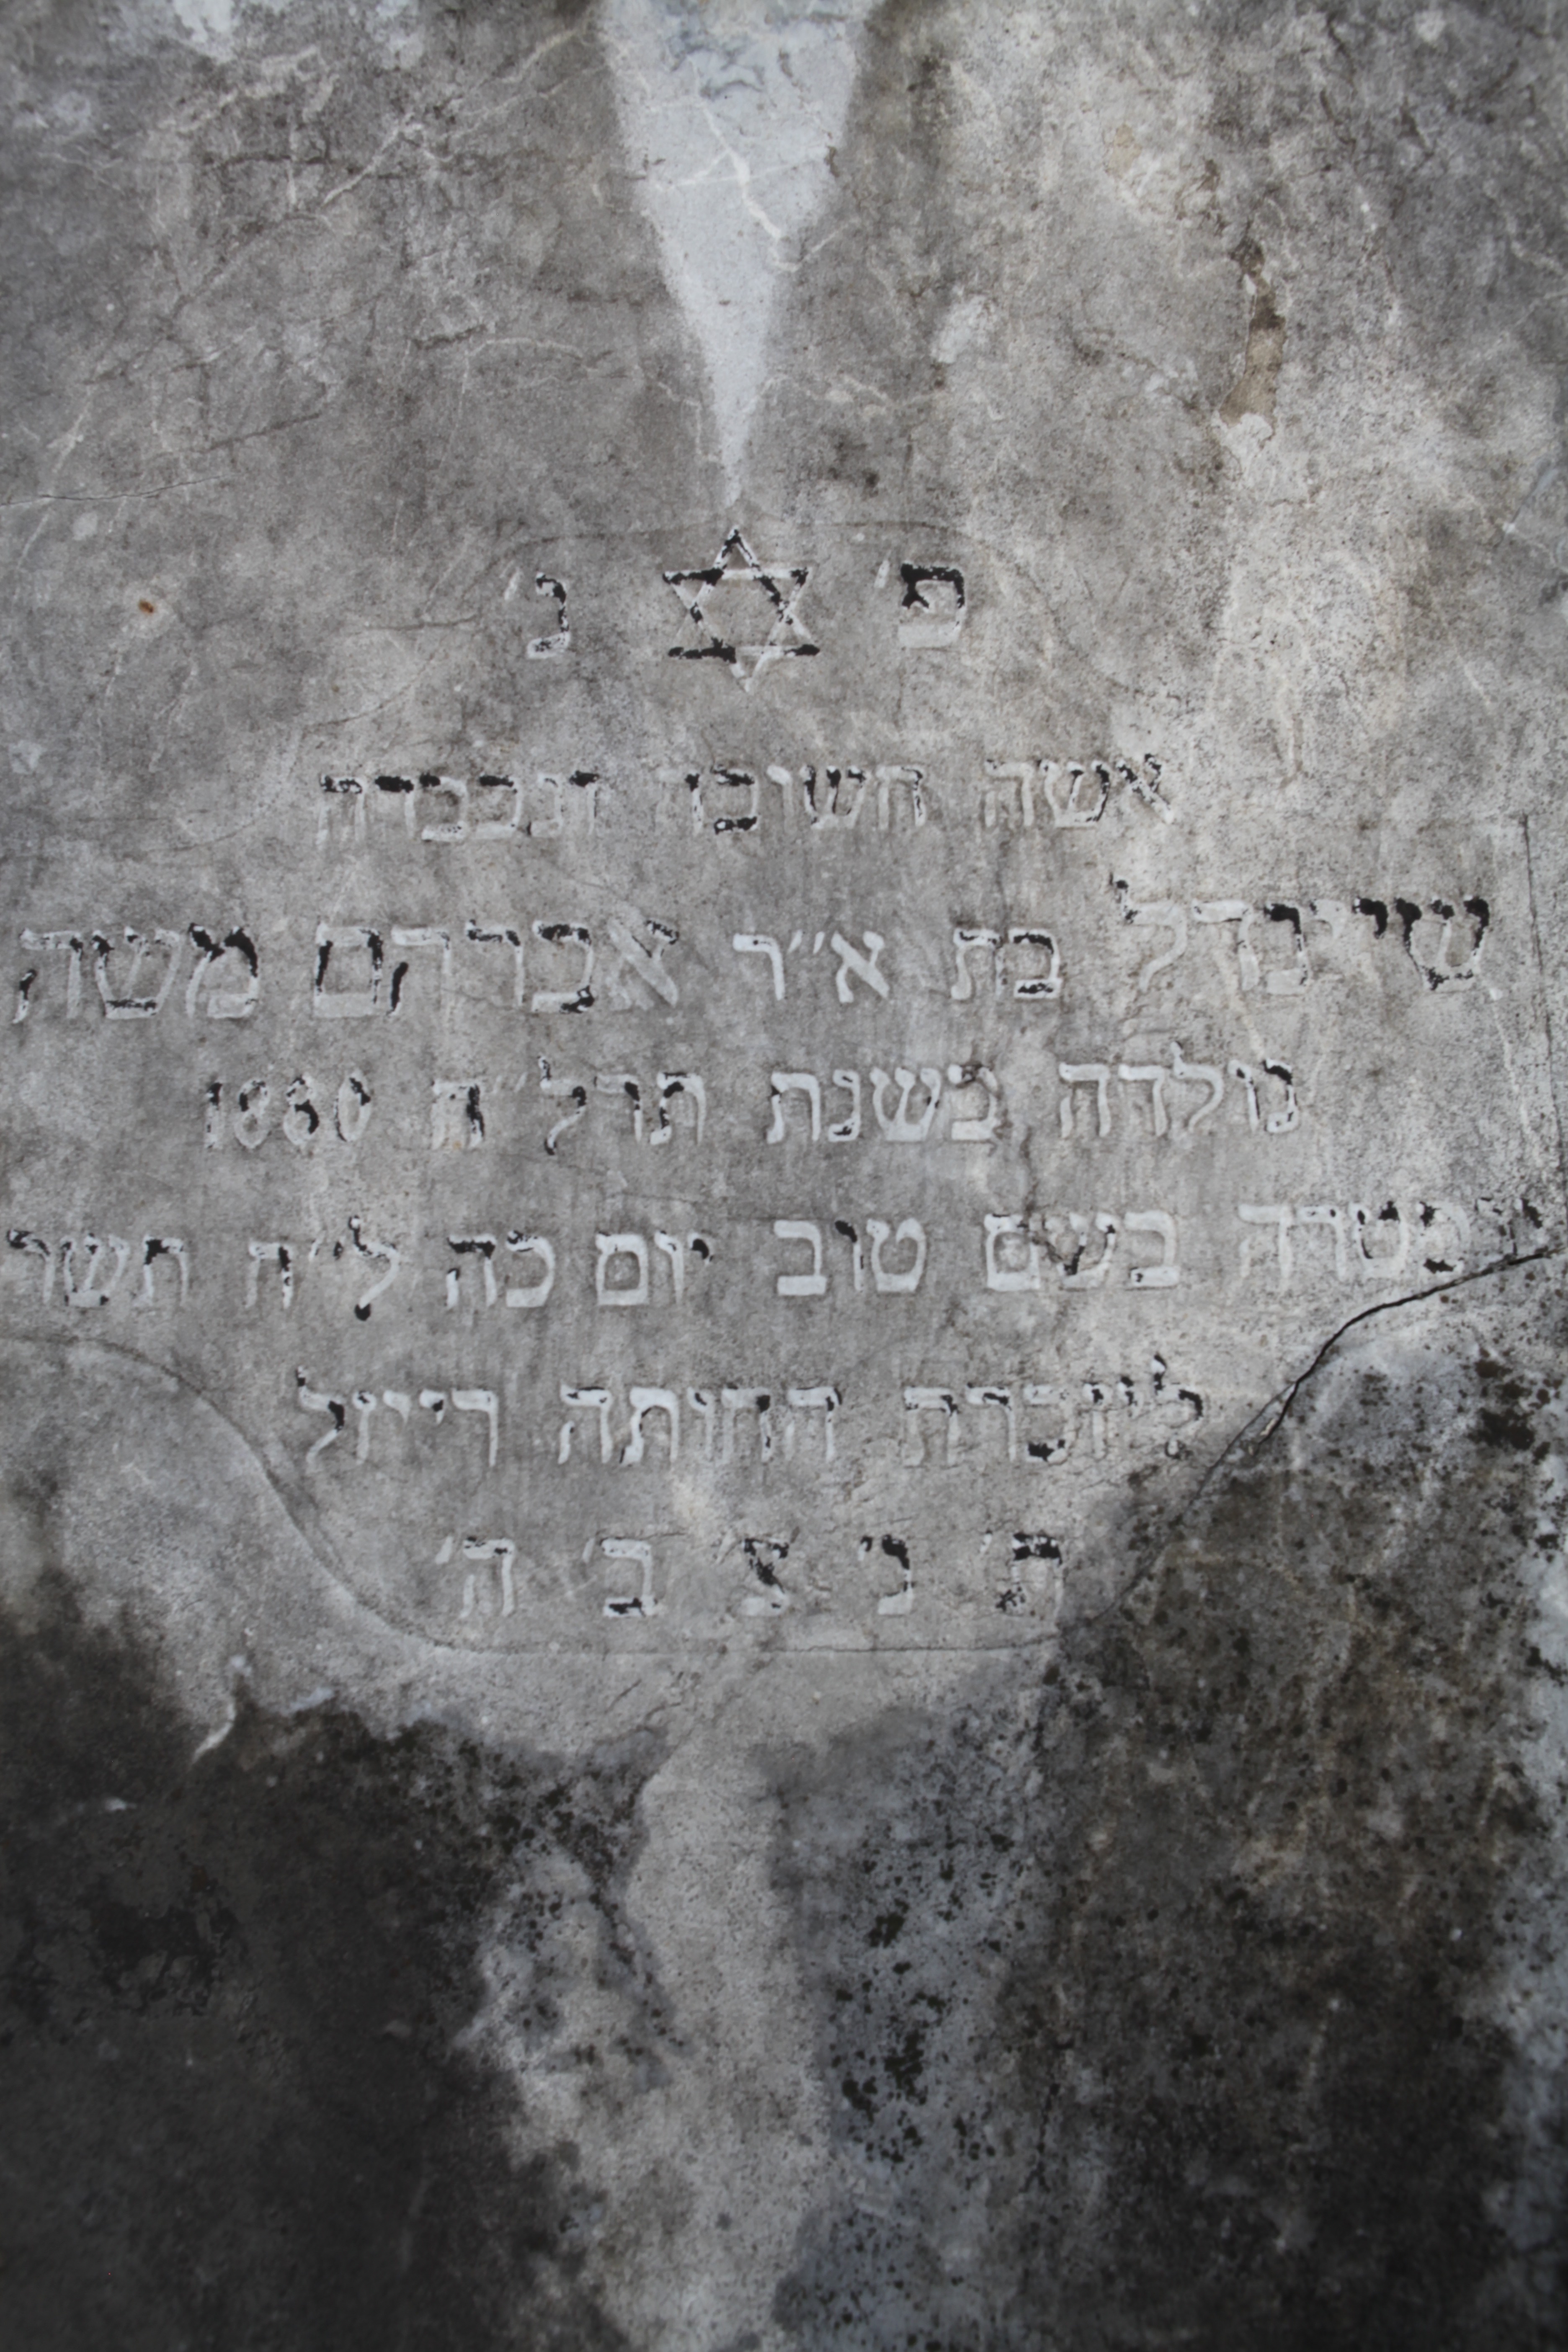 פ' נ'
אשה חשובה ונכבדה
שיינדל בת א״ר אברהם משה
נולדה בשנת תרל״ה 1880
בשם טוב יום כה ל״ח תשר
ליזכרת החותה רייזל
ת' נ' צ' ב' ה'